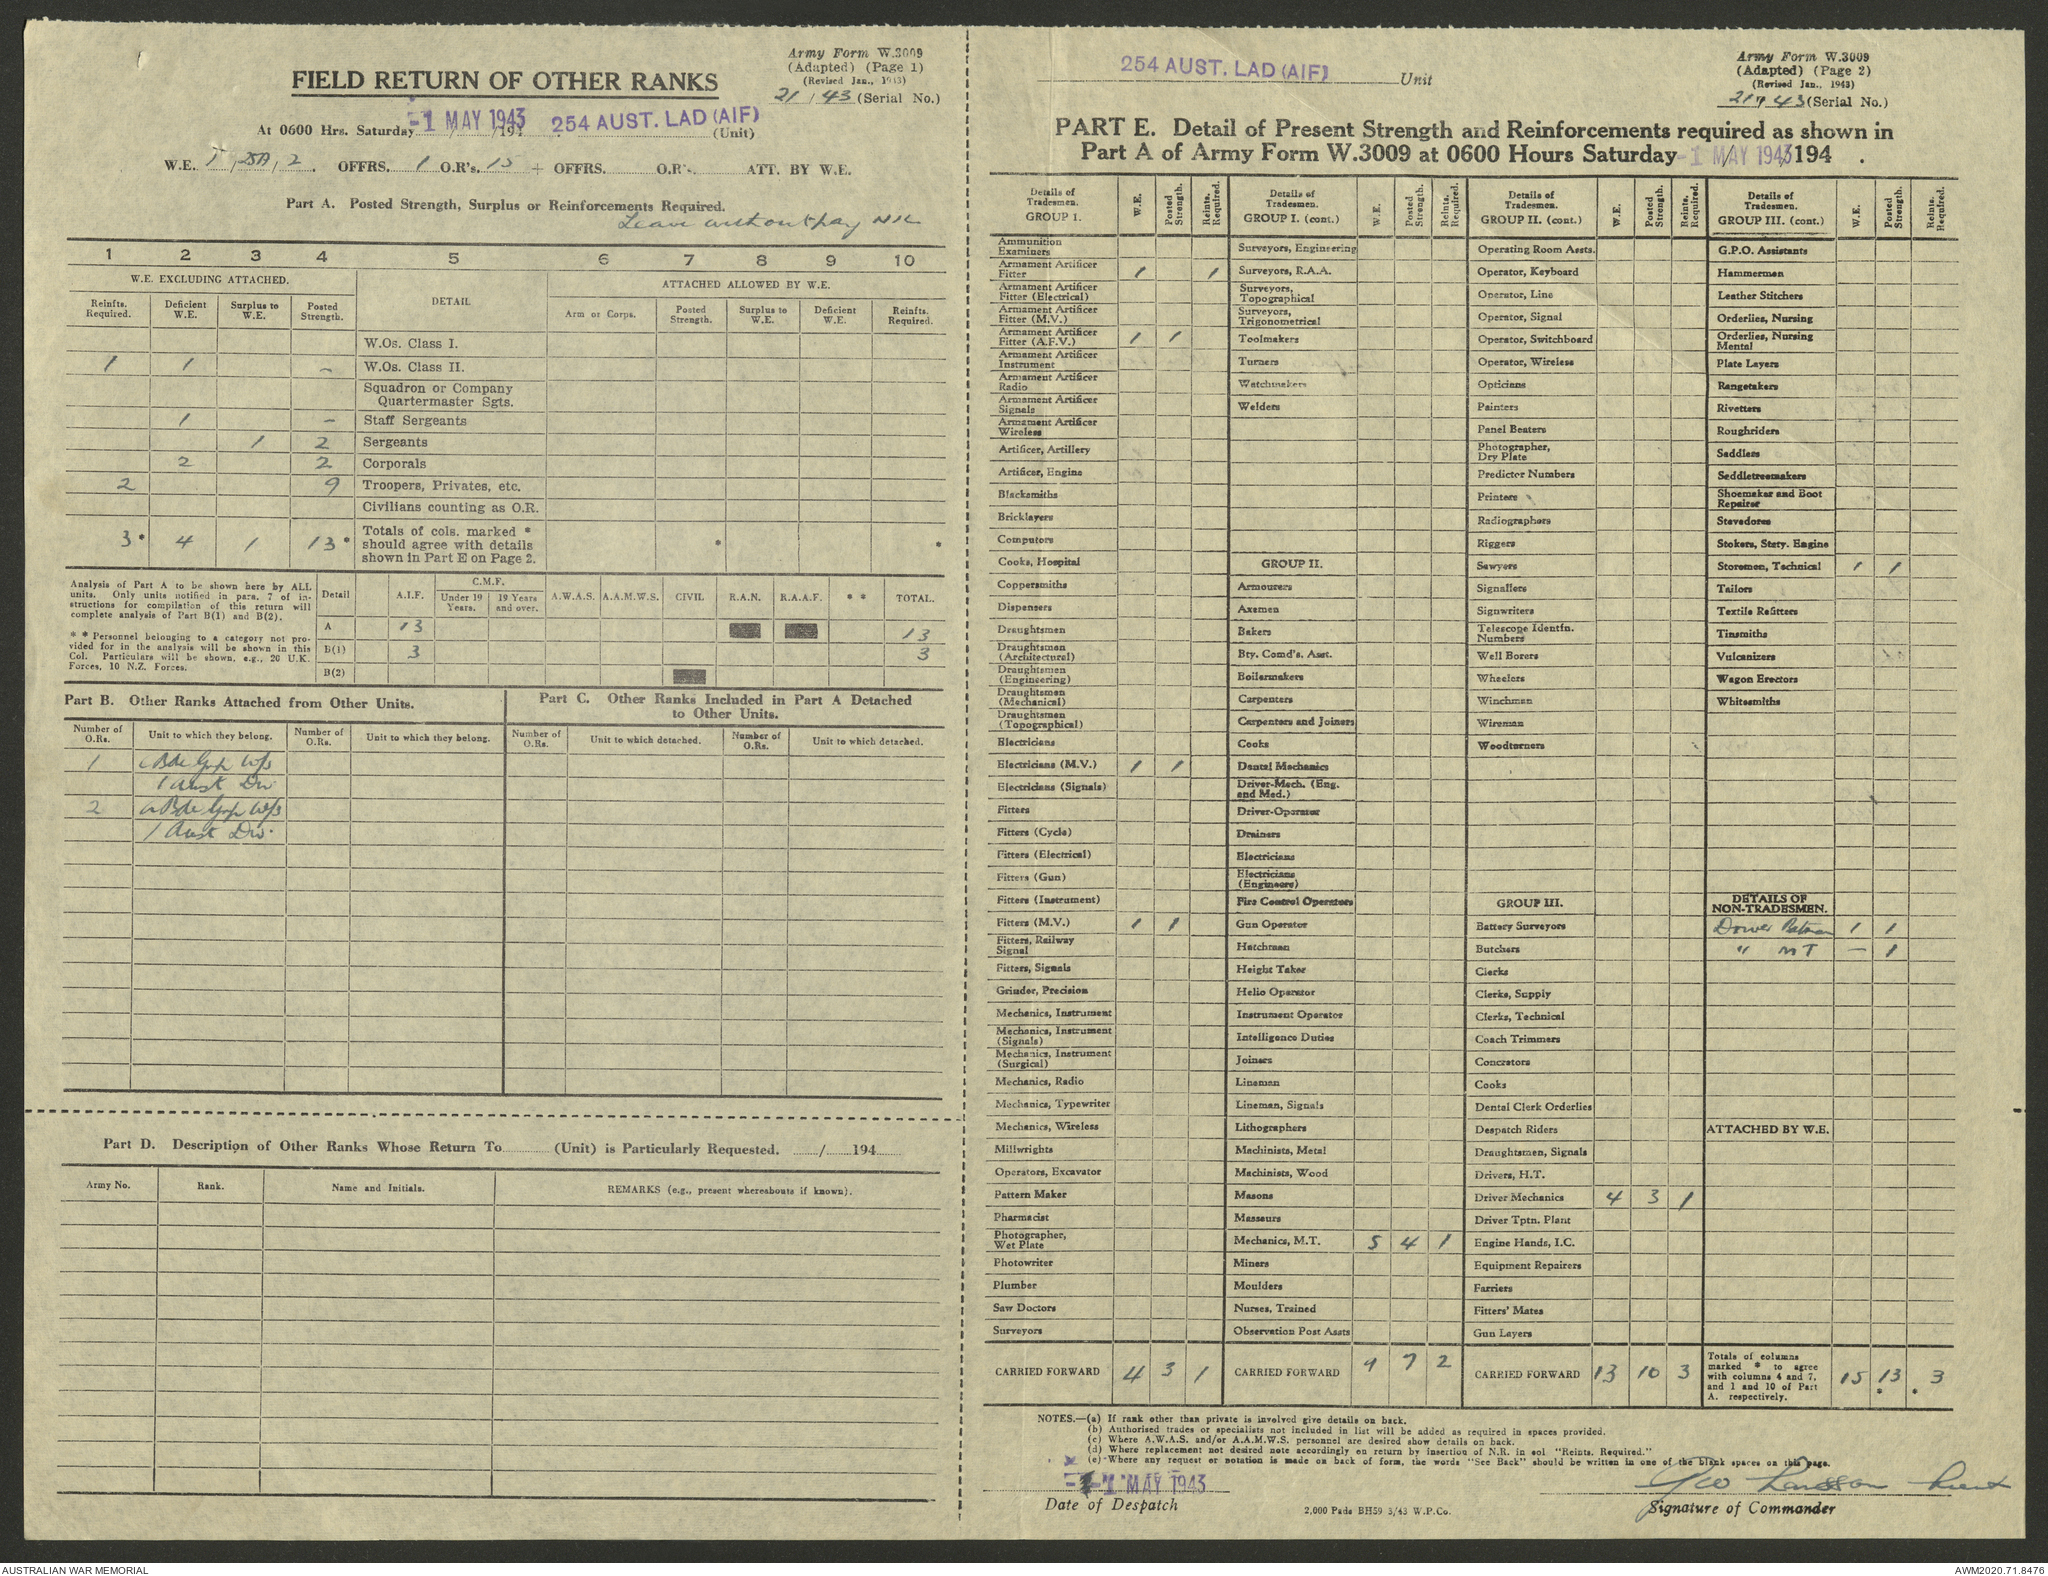 Army Form W.3009
(Adapted) (Page 1)
(Revised Jan., 1943)
21 / 43 (Serial No.)
FIELD RETURN OF OTHER RANKS
At 0600 Hrs. Saturday -1 MAY 1943 / /194 254 AUST. LAD (AIF) (Unit)
W.E. OFFRS. 1 O.R's. 15 + OFFRS. O.R's. ATT. BY W.E.
Part A. Posted Strength, Surplus or Reinforcements Required.
Leave without pay NIL
1 2 3 4 5 6 7 8 9 10
W.E. EXCLUDING ATTACHED. DETAIL ATTACHED ALLOWED BY W.E.
Reinfts. Required. Deficient W.E. Surplus to W.E. Posted Strength. Arm or Corps. Posted Strength. Surplus to W.E. Deficient W.E. Reinfts. Required.
W.Os. Class I.
1 1 - W.Os. Class II.
Squadron or Company
Quartermaster Sgts.
1 - Staff Sergeants
1 2 Sergeants
2 2 Corporals
2 9 Troopers, Privates, etc.
Civilians counting as O.R.
3* 4 1 13* Totals of cols. marked * * *
should agree with details
shown in Part E on Page 2.
Analysis of Part A to be shown here by ALL
units. Only units notified in para. 7 of in-
structions for compilation of this return will
complete analysis of Part B(1) and B(2).
* * Personnel belonging to a category not pro-
vided for in the analysis will be shown in this
Col. Particulars will be shown, e.g., 20 U.K.
Forces, 10 N.Z. Forces.
Detail A.I.F. C.M.F. Under 19 Years. 19 Years and over. A.W.A.S. A.A.M.W.S. CIVIL R.A.N. R.A.A.F. * * TOTAL.
A 13 13
B(1) 3 3
B(2)
Part B. Other Ranks Attached from Other Units.
Number of O.Rs. Unit to which they belong. Number of O.Rs. Unit to which they belong.
1 Bde Grp W/s
1 Aust Div
2 Bde Grp W/s
1 Aust Div.
Part C. Other Ranks Included in Part A Detached
to Other Units.
Number of O.Rs. Unit to which detached. Number of O.Rs. Unit to which detached.
Part D. Description of Other Ranks Whose Return To (Unit) is Particularly Requested. / 194
Army No. Rank. Name and Initials. REMARKS (e.g., present whereabouts if known).
254 AUST. LAD (AIF) Unit
Army Form W.3009
(Adapted) (Page 2)
(Revised Jan., 1943)
21 / 43 (Serial No.)
PART E. Detail of Present Strength and Reinforcements required as shown in
Part A of Army Form W.3009 at 0600 Hours Saturday -1 MAY 1943 /194 .
Details of Tradesmen. GROUP I. W.E. Posted Strength. Reints. Required.
Ammunition Examiners
Armament Artificer Fitter 1 1
Armament Artificer Fitter (Electrical)
Armament Artificer Fitter (M.V.)
Armament Artificer Fitter (A.F.V.) 1 1
Armament Artificer Instrument
Armament Artificer Radio
Armament Artificer Signals
Armament Artificer Wireless
Artificer, Artillery
Artificer, Engine
Blacksmiths
Bricklayers
Computors
Cooks, Hospital
Coppersmiths
Dispensers
Draughtsmen
Draughtsmen (Architectural)
Draughtsmen (Engineering)
Draughtsmen (Mechanical)
Draughtsmen (Topographical)
Electricians
Electricians (M.V.) 1 1
Electricians (Signals)
Fitters
Fitters (Cycle)
Fitters (Electrical)
Fitters (Gun)
Fitters (Instrument)
Fitters (M.V.) 1 1
Fitters, Railway Signal
Fitters, Signals
Grinder, Precision
Mechanics, Instrument
Mechanics, Instrument (Signals)
Mechanics, Instrument (Surgical)
Mechanics, Radio
Mechanics, Typewriter
Mechanics, Wireless
Millwrights
Operators, Excavator
Pattern Maker
Pharmacist
Photographer, Wet Plate
Photowriter
Plumber
Saw Doctors
Surveyors
CARRIED FORWARD 4 3 1
Details of Tradesmen. GROUP I. (cont.) W.E. Posted Strength. Reints. Required.
Surveyors, Engineering
Surveyors, R.A.A.
Surveyors, Topographical
Surveyors, Trigonometrical
Toolmakers
Turners
Watchmakers
Welders
GROUP II.
Armourers
Axemen
Bakers
Bty. Comd's. Asst.
Boilermakers
Carpenters
Carpenters and Joiners
Cooks
Dental Mechanics
Driver-Mech. (Eng. and Med.)
Driver-Operator
Drainers
Electricians
Electricians (Engineers)
Fire Control Operators
Gun Operator
Hatchman
Height Taker
Helio Operator
Instrument Operator
Intelligence Duties
Joiners
Lineman
Lineman, Signals
Lithographers
Machinists, Metal
Machinists, Wood
Masons
Masseurs
Mechanics, M.T. 5 4 1
Miners
Moulders
Nurses, Trained
Observation Post Assts
CARRIED FORWARD 9 7 2
Details of Tradesmen. GROUP II. (cont.) W.E. Posted Strength. Reints. Required.
Operating Room Assts.
Operator, Keyboard
Operator, Line
Operator, Signal
Operator, Switchboard
Operator, Wireless
Opticians
Painters
Panel Beaters
Photographer, Dry Plate
Predictor Numbers
Printers
Radiographers
Riggers
Sawyers
Signallers
Signwriters
Telescope Identfn. Numbers
Well Borers
Wheelers
Winchman
Wireman
Woodturners
GROUP III.
Battery Surveyors
Butchers
Clerks
Clerks, Supply
Clerks, Technical
Coach Trimmers
Concretors
Cooks
Dental Clerk Orderlies
Despatch Riders
Draughtsmen, Signals
Drivers, H.T.
Driver Mechanics 4 3 1
Driver Tptn. Plant
Engine Hands, I.C.
Equipment Repairers
Farriers
Fitters' Mates
Gun Layers
CARRIED FORWARD 13 10 3
Details of Tradesmen. GROUP III. (cont.) W.E. Posted Strength. Reints. Required.
G.P.O. Assistants
Hammermen
Leather Stitchers
Orderlies, Nursing
Orderlies, Nursing Mental
Plate Layers
Rangetakers
Rivetters
Roughriders
Saddlers
Saddletreemakers
Shoemaker and Boot Repairer
Stevedores
Stokers, Stety. Engine
Storemen, Technical 1 1
Tailors
Textile Refitters
Tinsmiths
Vulcanizers
Wagon Erectors
Whitesmiths
DETAILS OF
NON-TRADESMEN.
Driver Batman 1 1
" MT - 1
ATTACHED BY W.E.
Totals of columns
marked * to agree
with columns 4 and 7,
and 1 and 10 of Part
A. respectively. 15 13 * * 3
NOTES.—(a) If rank other than private is involved give details on back.
(b) Authorised trades or specialists not included in list will be added as required in spaces provided.
(c) Where A.W.A.S. and/or A.A.M.W.S. personnel are desired show details on back.
(d) Where replacement not desired note accordingly on return by insertion of N.R. in col "Reints. Required."
(e) Where any request or notation is made on back of form, the words "See Back" should be written in one of the blank spaces on this page.
-1 MAY 1943
Date of Despatch
2,000 Pads BH59 3/43 W.P.Co.
Lieut
Signature of Commander
AUSTRALIAN WAR MEMORIAL
AWM2020.71.8476